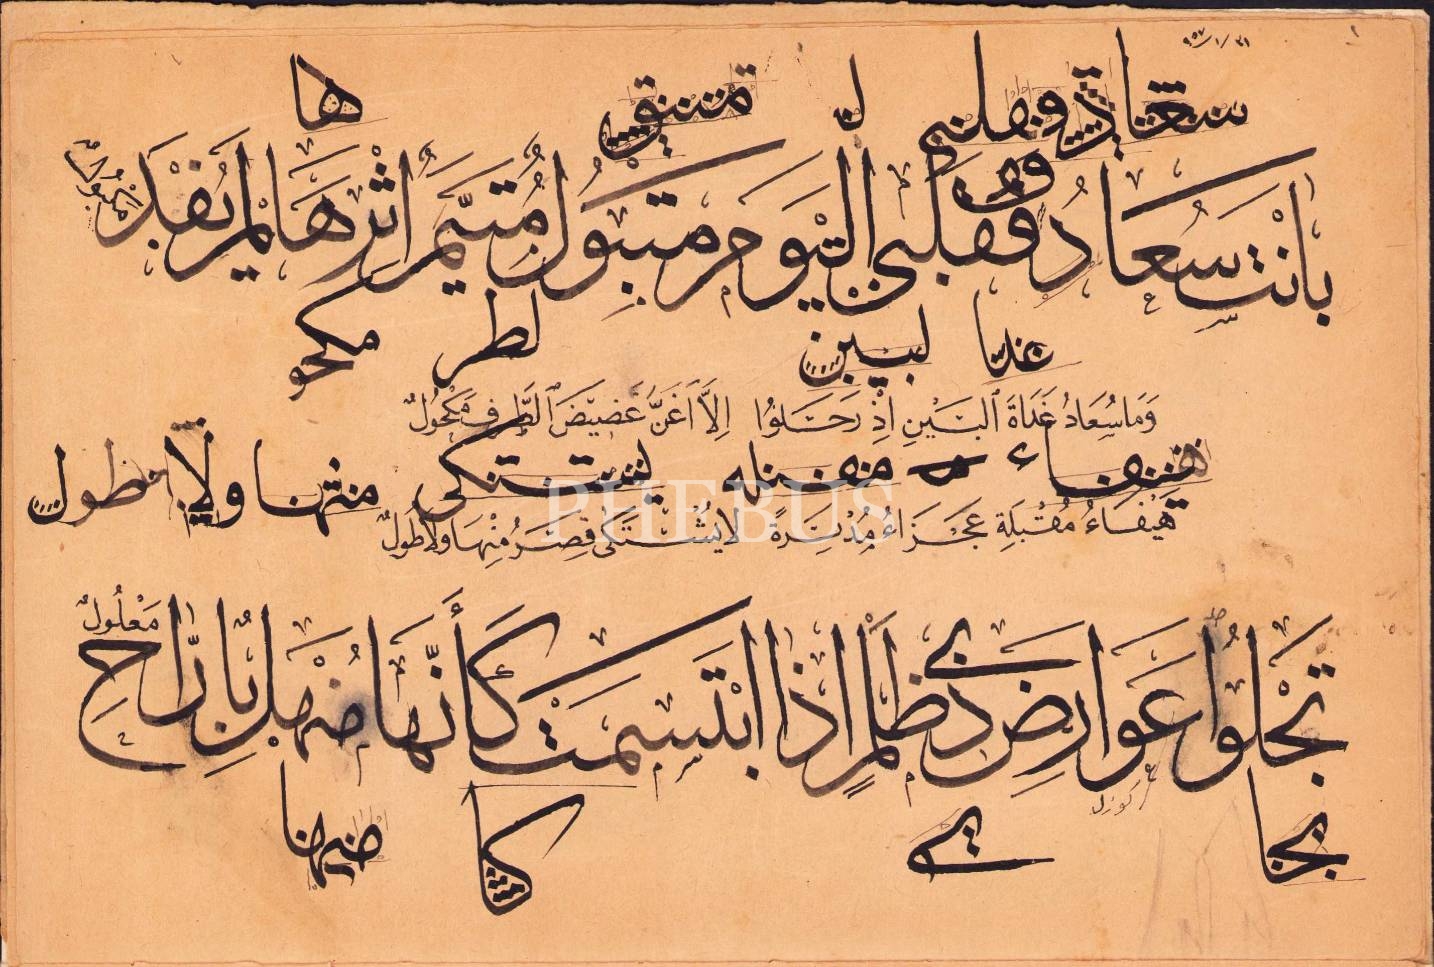 ١
سعاد فقلبي ل متيق ها
بانَتْ سُعَادُ فَقَلْبِي الْيَوْمَ مَتْبُولُ مُتَيَّمٌ أَثْرَهَا لَمْ يُفْدَ مَكْبُولُ
غدا لبين لطر مكحو
وَمَا سُعَادُ غَدَاةَ الْبَيْنِ إِذْ رَحَلُوا إِلَّا أَغَنُّ غَضِيْضُ الطَّرْفِ مَكْحُولُ
هيفاء مقبله يشتكى منها ولا طول
PHEBUS
هَيْفَاءُ مُقْبِلَةً عَجْزَاءُ مُدْبِرَةً لَا يُشْتَكَى قِصَرٌ مِنْهَا وَلَا طُولُ
تَجْلُوا عَوَارِضَ ذِي ظَلْمٍ إِذَا ابْتَسَمَتْ كَأَنَّهَا مُنْهَلٌ بِالرَّاحِ مَعْلُولُ